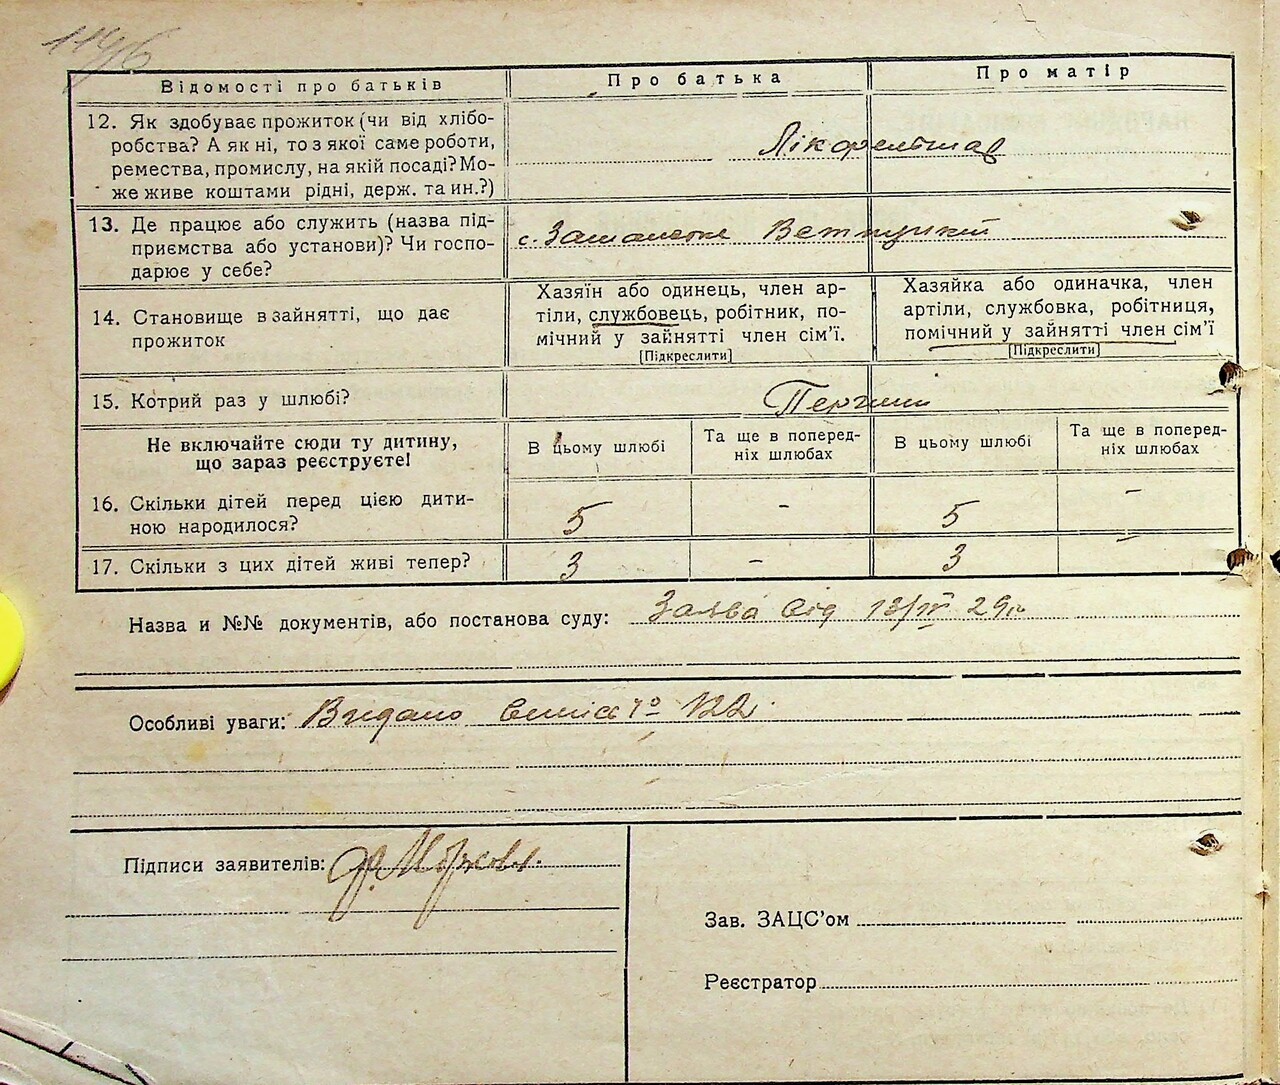 Відомості про батьків
Про батька
Про матір
12. Як здобуває прожиток (чи від хлібо-
робства? А як ні, то з якої саме роботи,
ремества, промислу, на якій посаді? Мо-
же живе коштами рідні, держ. та ин.?)
13. Де працює або служить (назва під-
приємства або установи)? Чи госпо-
дарює у себе?
с.
14. Становище в зайнятті, що дає
прожиток
Хазяїн або одинець, член ар-
тіли, службовець, робітник, по-
мічний у зайнятті член сім'ї.
[Підкреслити]
Хазяйка або одиначка, член
артіли, службовка, робітниця,
помічний у зайнятті член сім'ї
[Підкреслити]
15. Котрий раз у шлюбі?
Не включайте сюди ту дитину,
що зараз реєструєте!
В цьому шлюбі
Та ще в поперед-
ніх шлюбах
В цьому шлюбі
Та ще в поперед-
ніх шлюбах
16. Скільки дітей перед цією дити-
ною народилося?
5 - 5 -
17. Скільки з цих дітей живі тепер?
3 - 3 -
Назва и №№ документів, або постанова суду: Заява від 13/IV 29 г.
Особливі уваги: Видано
Підписи заявителів:
Зав. ЗАЦС'ом
Реєстратор